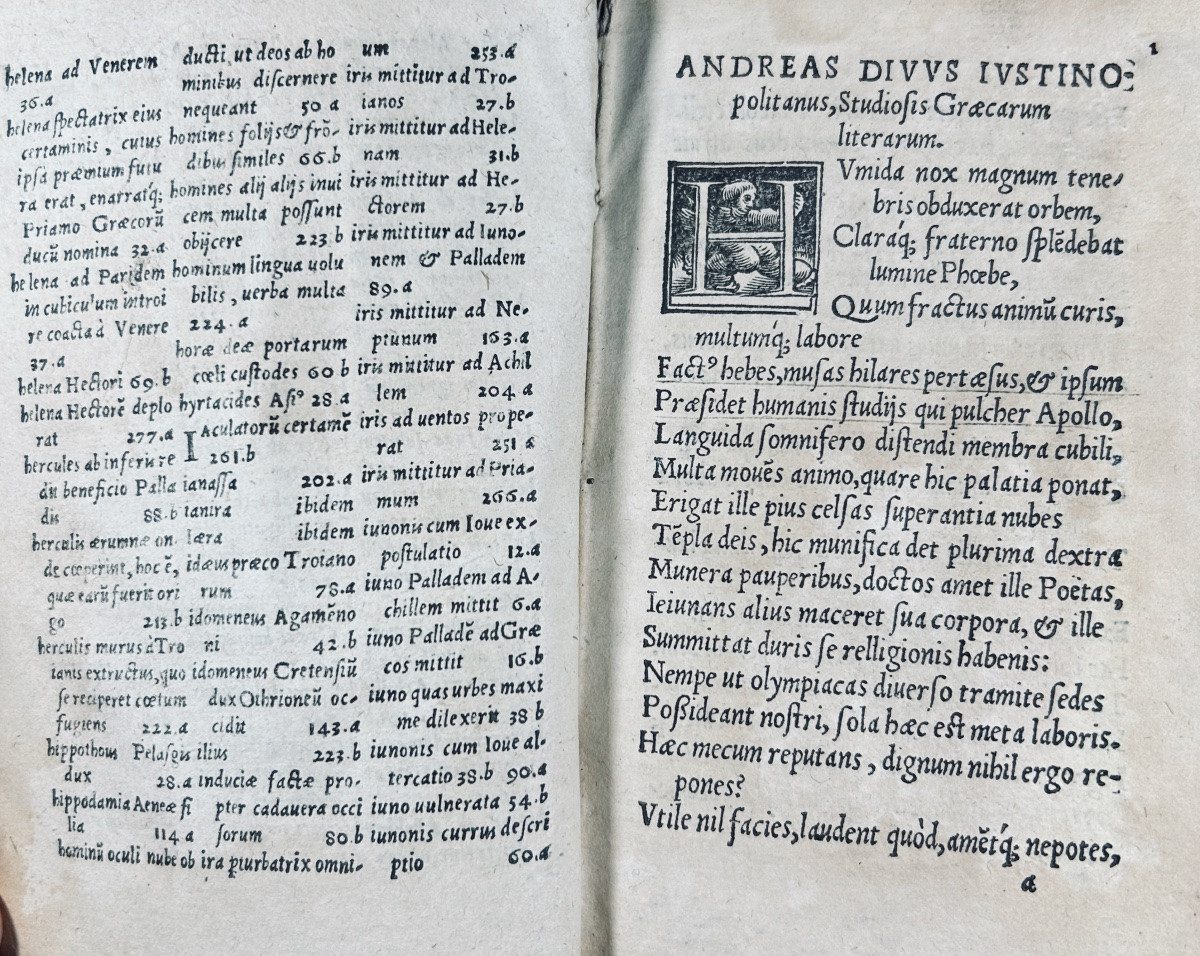 helena ad Venerem
36.a
helena spectatrix eius
certaminis , cuius
ipsa præmium futu
ra erat , enarratq́;
Priamo Græcorũ
ducũ nomina 32.a
helena ad Paridem
in cubiculum introi
re coacta à Venere
37.a
helena Hectori 69.b
helena Hectorẽ deplo
rat 277.a
hercules ab inferis re
dit beneficio Palla
dis 88.b
herculis ærumnæ un
de cœperint, hoc ẽ,
quæ earũ fuerit ori
go 213.b
herculis murus à Tro
ianis extructus, quo
se reciperet cœtum
fugiens 222.a
hippothous Pelasgis
dux 28.a
hippodamia Aeneæ fi
lia 114 a
hominũ oculi nube ob
ducti, ut deos ab ho
minibus discernere
nequeant 50 a
homines folijs & frõ-
dibus similes 66.b
homines alij alijs inui
cem multa possunt
obijcere 223.b
hominum lingua uolu
bilis , uerba multa
224.a
horæ deæ portarum
cœli custodes 60 b
hyrtacides Asiꝰ 28.a
IAculatorũ certamẽ
261.b
ianassa 202.a
ianira ibidem
Iæra ibidem
idæus præco Troiano
rum 78.a
idomeneus Agamẽno
ni 42.b
idomeneus Cretensiũ
dux Othrioneũ oc-
cidit 143.a
ilius 223.b
induciæ factæ pro-
pter cadauera occi
sorum 80.b
ira ꝑturbatrix omni-
um 253.a
iris mittitur ad Tro-
ianos 27.b
iris mittitur ad Hele-
nam 31.b
iris mittitur ad He-
ctorem 27.b
iris mittitur ad Iuno-
nem & Palladem
89.a
iris mittitur ad Ne-
ptunum 163.a
iris mittitur ad Achil
lem 204.a
iris ad uentos prope-
rat 251 a
iris mittitur ad Pria-
mum 266.a
iunonis cum Ioue ex-
postulatio 12.a
iuno Palladem ad A-
chillem mittit 6.a
iuno Palladẽ ad Græ
cos mittit 16.b
iuno quas urbes maxi
me dilexerit 38 b
iunonis cum Ioue al-
tercatio 38.b 90.a
iuno uulnerata 54.b
iunonis currus descri
ptio 60.a
1
ANDREAS DIVVS IVSTINO-
politanus, Studiosis Græcarum
literarum.
HVmida nox magnum tene-
bris obduxerat orbem,
Claraq́; fraterno splẽdebat
lumine Phœbe,
Quum fractus animũ curis,
multumq́; labore
Factꝰ hebes, musas hilares pertæsus, & ipsum
Præsidet humanis studijs qui pulcher Apollo,
Languida somnifero distendi membra cubili,
Multa mouẽs animo, quare hic palatia ponat,
Erigat ille pius celsas superantia nubes
Tẽpla deis, hic munifica det plurima dextra
Munera pauperibus, doctos amet ille Poëtas,
Ieiunans alius maceret sua corpora, & ille
Summittat duris se relligionis habenis:
Nempe ut olympiacas diuerso tramite sedes
Poßideant nostri, sola hæc est meta laboris.
Hæc mecum reputans , dignum nihil ergo re-
pones?
Vtile nil facies, laudent quòd, amẽtq́; nepotes,
a